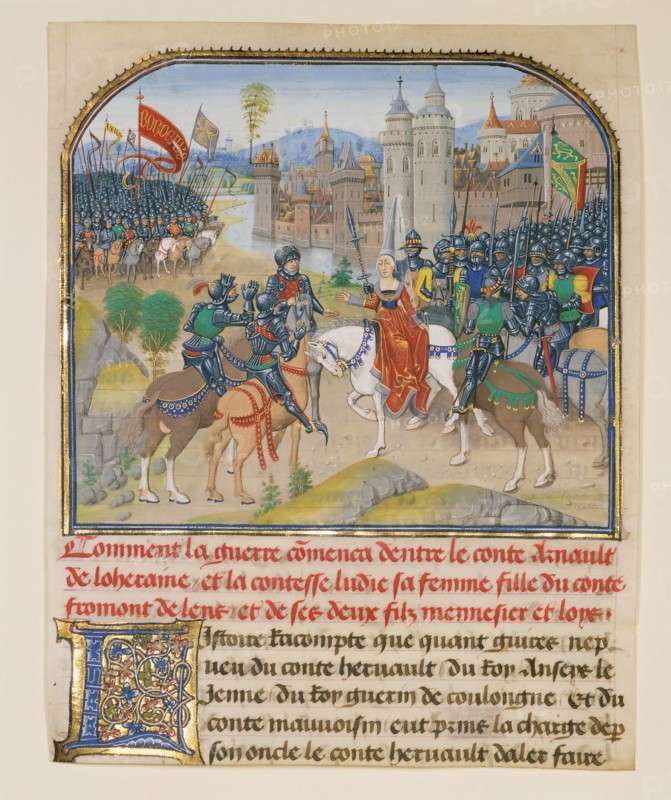 BORDEAUX
Comment la guerre cōmenca dentre le conte Arnault
de loheraine et la contesse ludie sa femme fille du conte
fromont de lens et de ses deux filz mennesier et loys.
Istoire Racompte que quant guires nep
ueu du conte heruault Du Roy Anseys le
Jenne Du Roy guerin de coulongne Et du
conte mauuoisin eut prins la charge de p
son oncle le conte heruault daler faire
PHOTO12